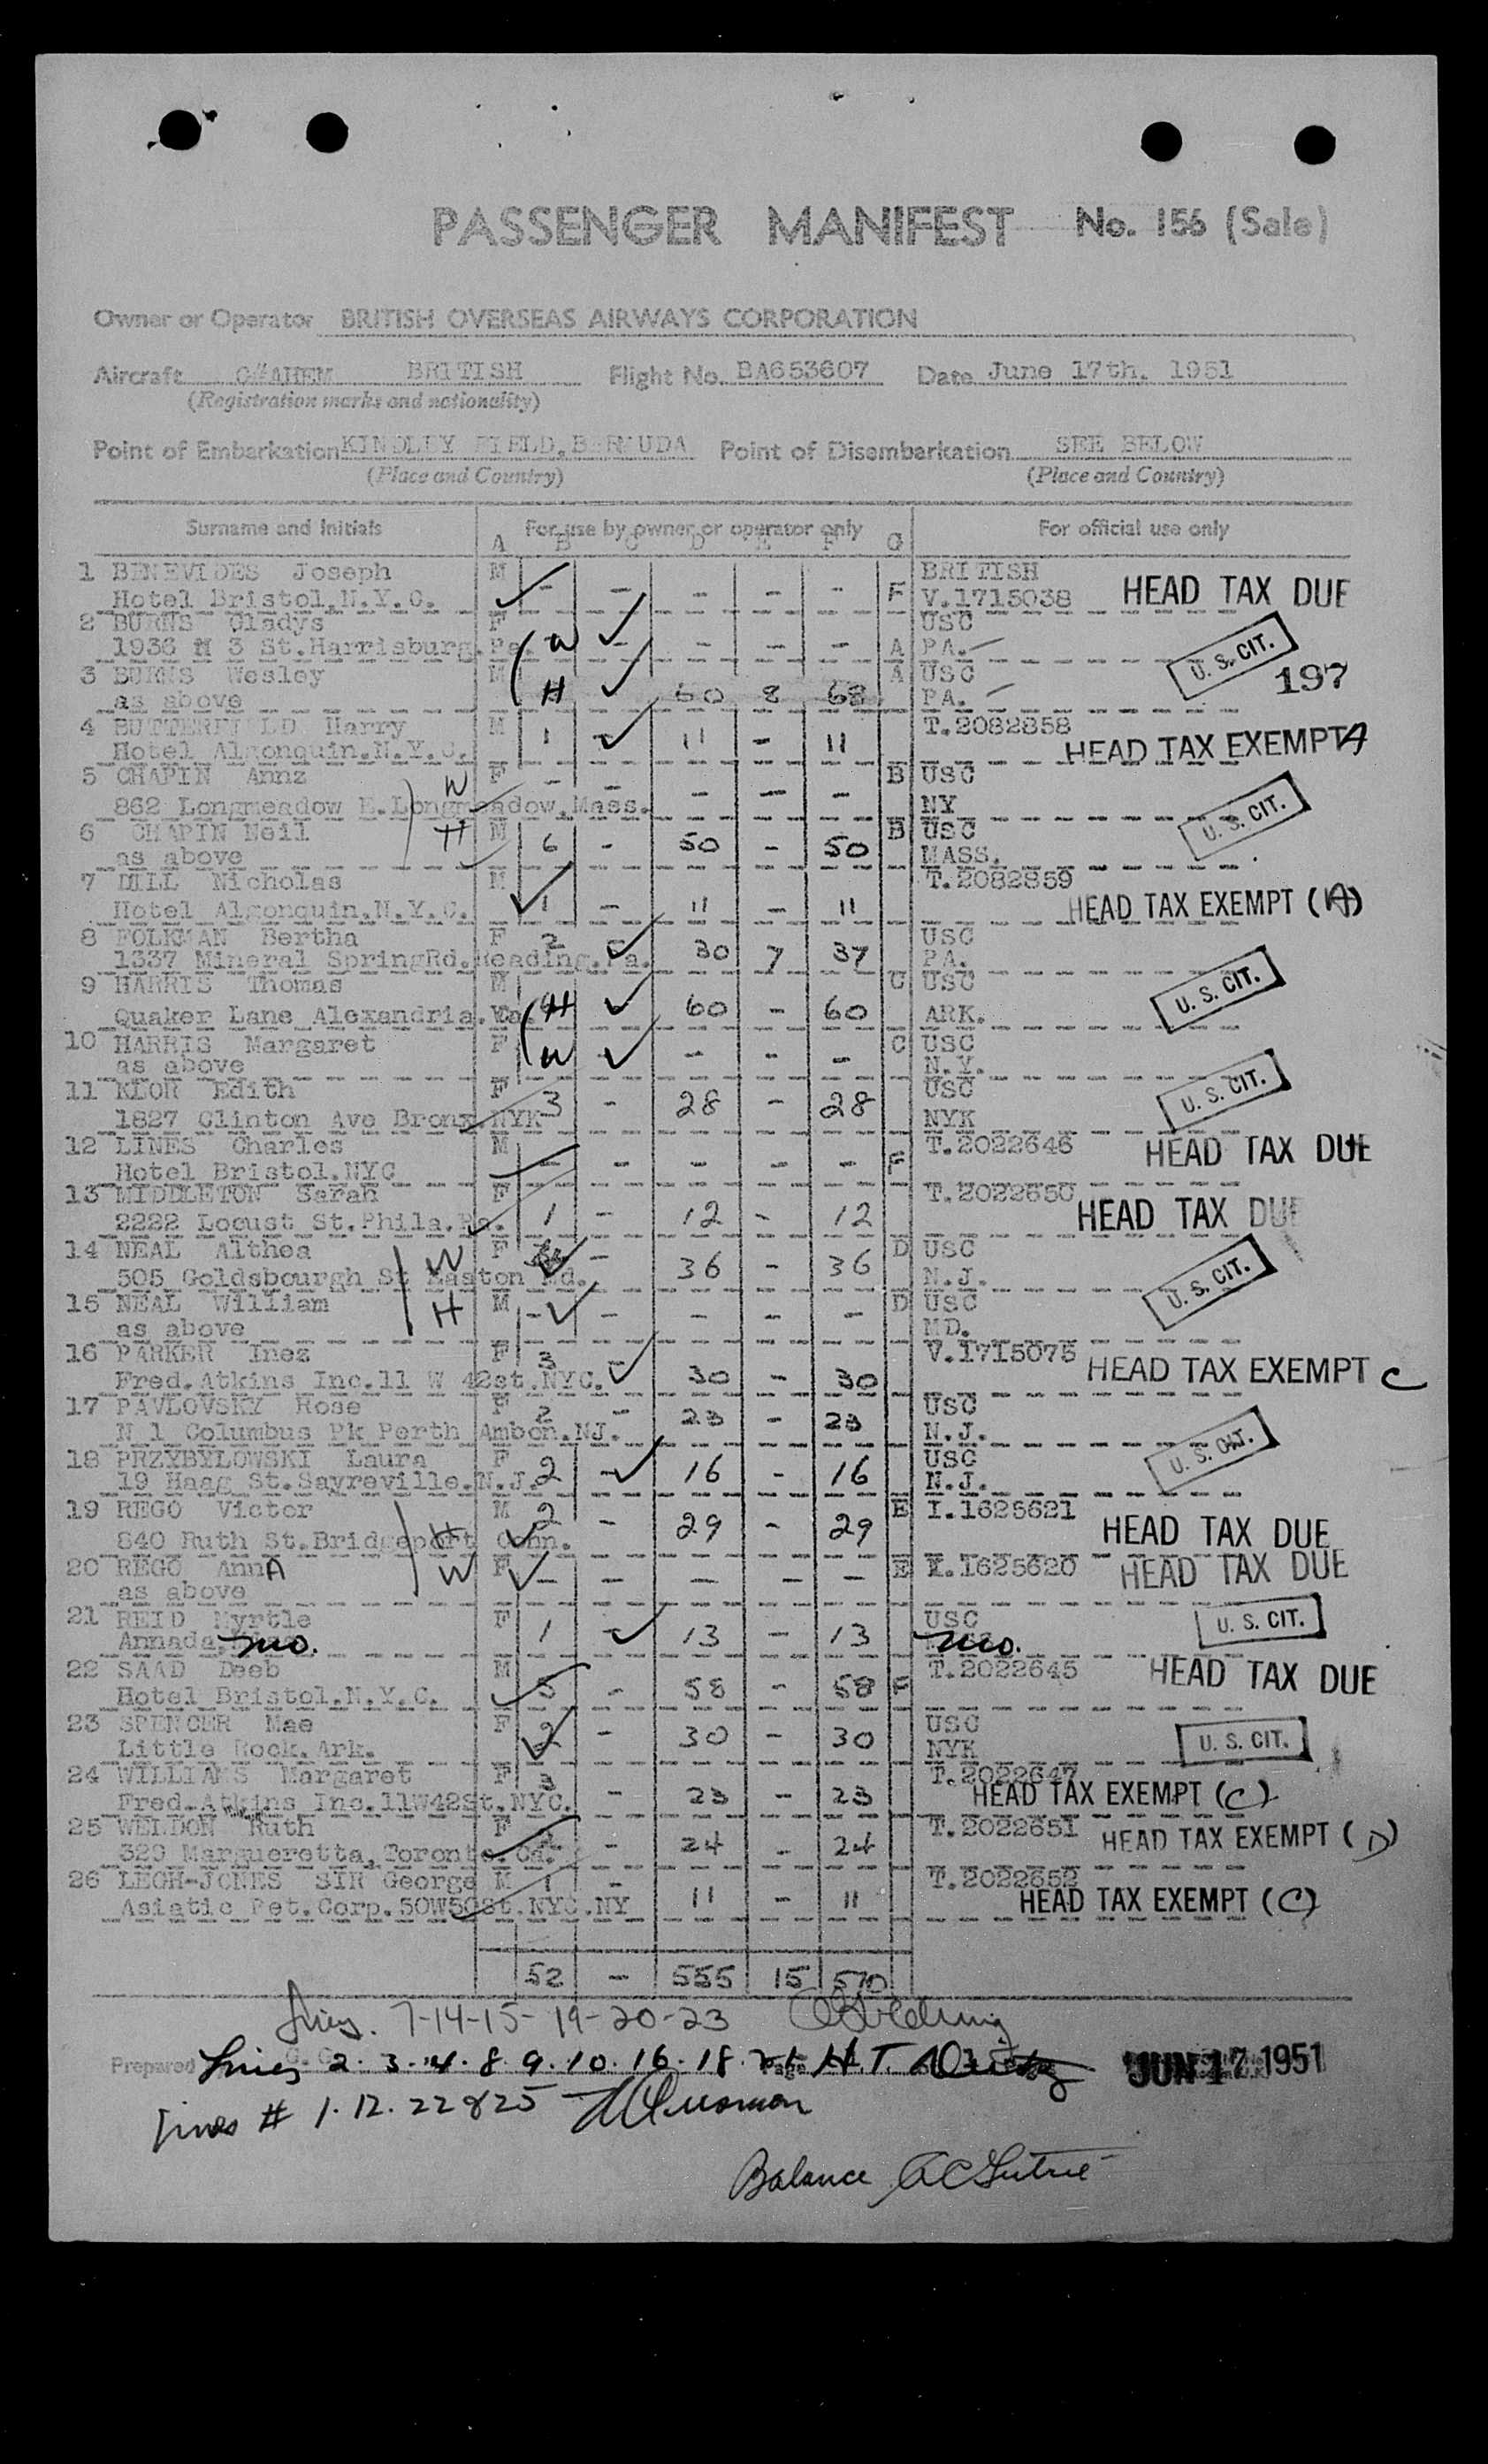 PASSENGER MANIFEST No. 156 (Sale)
Owner or Operator BRITISH OVERSEAS AIRWAYS CORPORATION
Aircraft G#AHEM BRITISH Flight No. BA653607 Date June 17th. 1951
(Registration marks and nationality)
Point of Embarkation KINDLEY FIELD, BERMUDA Point of Disembarkation SEE BELOW
(Place and Country) (Place and Country)
Surname and Initials For use by owner or operator only For official use only
A B C D E F G
1 BENEVIDES Joseph M BRITISH
Hotel Bristol.N.Y.C. - - - - - F V.1715038 HEAD TAX DUE
2 BURNS Gladys F USC
1936 N 3 St.Harrisburg.Pa. W - - - - A PA. U. S. CIT.
3 BURNS Wesley M A USC 197
as above H 60 8 68 PA.
4 BUTTERFIELD Harry M T.2082858
Hotel Algonquin.N.Y.C. 1 - 11 - 11 HEAD TAX EXEMPT A
5 CHAPIN Annz W F - - B USC
862 Longmeadow E.Longmeadow.Mass. - - - NY U. S. CIT.
6 CHAPIN Neil H M 6 - 50 - 50 B USC
as above MASS.
7 DILL Nicholas M T.2082859
Hotel Algonquin.N.Y.C. 1 - 11 - 11 HEAD TAX EXEMPT (A)
8 FOLKMAN Bertha F 2 30 7 37 USC
1337 Mineral SpringRd.Reading.Pa. PA.
9 HARRIS Thomas M C USC U. S. CIT.
Quaker Lane Alexandria.Va. H 60 - 60 ARK.
10 HARRIS Margaret F W - - - C USC
as above N.Y.
11 KLOR Edith F 3 - 28 - 28 USC U. S. CIT.
1827 Clinton Ave Bronx NYK NYK
12 LINES Charles M T.2022646 HEAD TAX DUE
Hotel Bristol.NYC - - - - - F
13 MIDDLETON Sarah F T.2022650
2222 Locust St.Phila.Pa. 1 - 12 - 12 HEAD TAX DUE
14 NEAL Althea W F - 36 - 36 D USC
505 Goldsbourgh St Easton Md. N.J. U. S. CIT.
15 NEAL William H M - - - - - D USC
as above MD.
16 PARKER Inez F 3 - 30 - 30 V.1715075 HEAD TAX EXEMPT C
Fred.Atkins Inc.11 W 42st.NYC.
17 PAVLOVSKY Rose F 2 - 23 - 23 USC
N 1 Columbus Pk Perth Ambon.NJ. N.J. U. S. CIT.
18 PRZYBYLOWSKI Laura F 2 - 16 - 16 USC
19 Haag St.Sayreville.N.J. N.J.
19 REGO Victor M 2 - 29 - 29 E I.1625621
840 Ruth St.Bridgeport Conn. H HEAD TAX DUE
20 REGO AnnA W F - - - - - E I.1625620 HEAD TAX DUE
as above
21 REID Myrtle F 1 - 13 - 13 USC U. S. CIT.
Annada, Mo. Mo.
22 SAAD Deeb M 5 - 58 - 58 F T.2022645 HEAD TAX DUE
Hotel Bristol.N.Y.C.
23 SPENCER Mae F 2 - 30 - 30 USC U. S. CIT.
Little Rock.Ark. NYK
24 WILLIAMS Margaret F 3 - 23 - 23 T.2022647
Fred.Atkins Inc.11W42St.NYC. HEAD TAX EXEMPT (C)
25 WELDON Ruth F - 24 - 24 T.2022651 HEAD TAX EXEMPT (D)
329 Margueretta,Toronto.Ca.
26 LEGH-JONES SIR George M 1 - 11 - 11 T.2022652
Asiatic Pet.Corp.50W50St.NYC.NY HEAD TAX EXEMPT (C)
52 - 555 15 570
Lines. 7-14-15-19-20-23
Prepared Lines 2.3.4.8.9.10.16.18.21 H.T. JUN 17 1951
Lines # 1.12.22&25
Balance